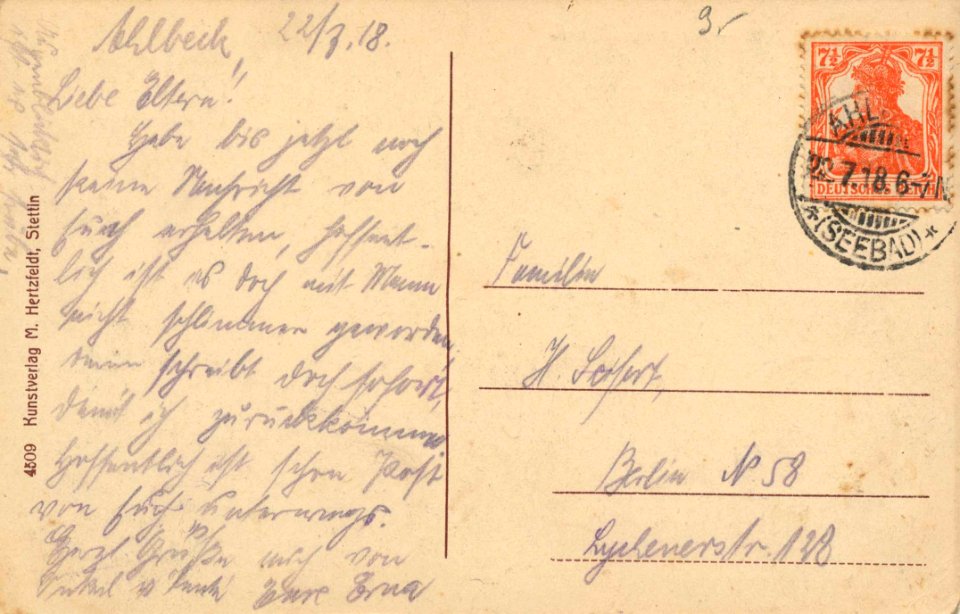 9.-
Ahlbeck, 22/7.18.
Liebe Eltern!
Habe bis jetzt noch
keine Nachricht von
Euch erhalten, hoffent-
lich ist es doch mit Mama
nicht schlimmer geworden,
dann schreibt doch sofort,
damit ich zurückkomme
Hoffentlich ist schon Post
von Euch unterwegs.
Herzl. Grüße auch von
Onkel u Tante Eure Erna
4509 Kunstverlag M. Hertzfeldt, Stettin
7½ 7½
DEUTSCHES REICH
AHL
22.7.18.6-7N.
*(SEEBAD)*
Familie
H. Seifert,
Berlin N 58
Lychenerstr. 128